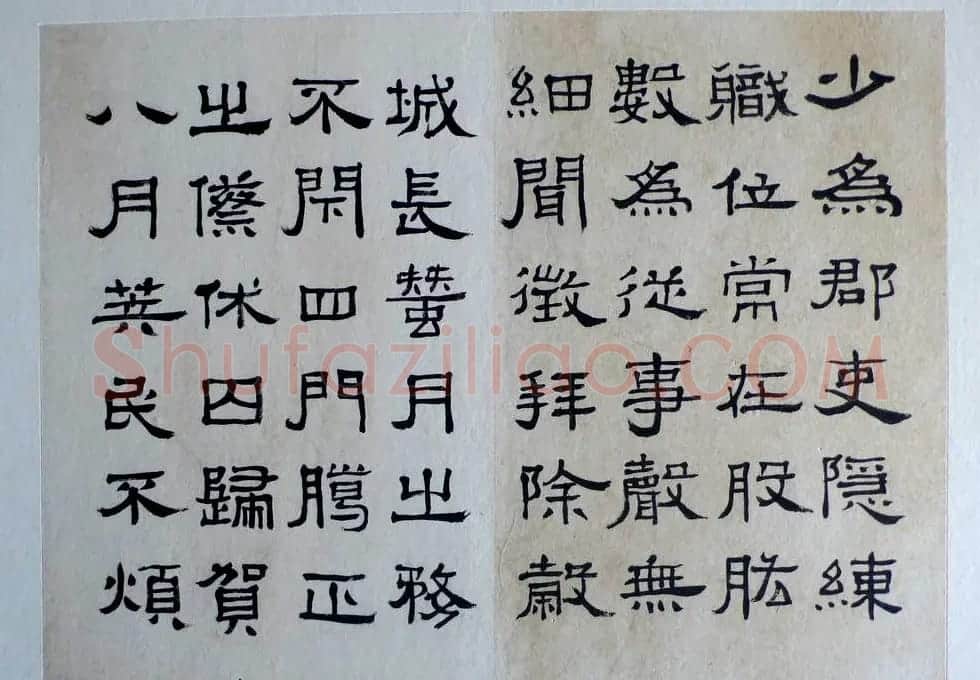 少為郡吏隱練
職位常在股肱
數為從事聲無
細聞徵拜除穀
城長蠶月之務
不閉四門臘正
之傺休囚歸賀
八月筭民不煩
Shufaziliao.COM